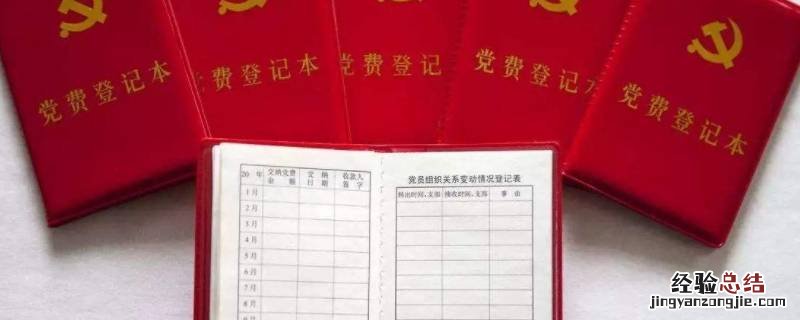 党费登记本
党费登记本
党费登记
党费登记本
党费登记本
20 年 交纳党费金额 交纳日期 收款人签字
1月
2月
3月
4月
5月
6月
7月
8月
党员组织关系变动情况登记表
转出时间、支部 接收时间、支部 事由
经验总结
jingyanzongjie.com